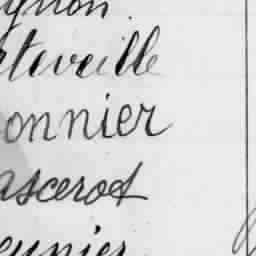 gnon.
teveille
onnier
ascerot
eunier